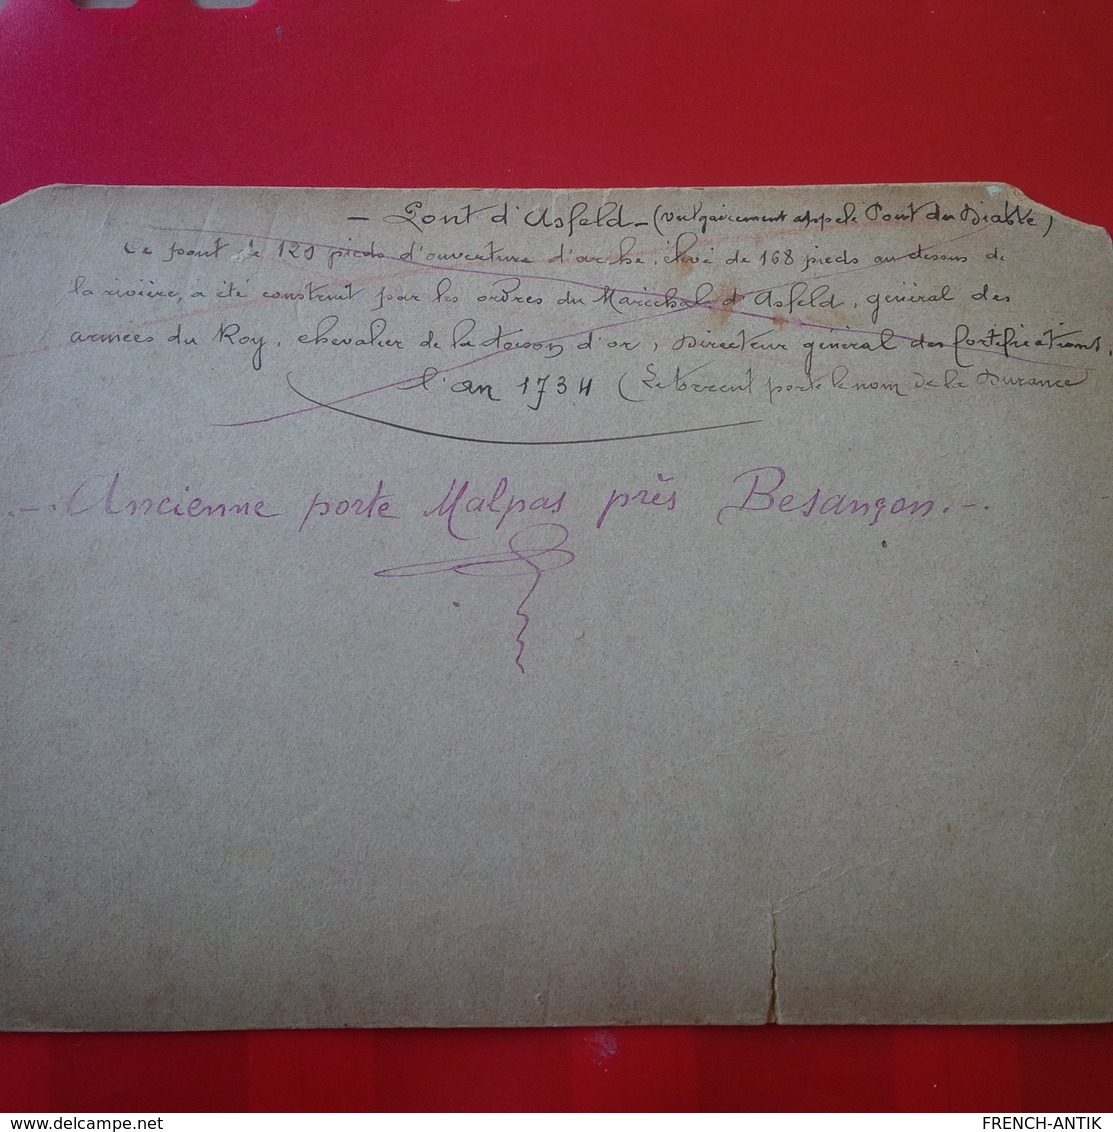 - Pont d'Asfeld - (vulgairement appelé Pont du Diable)
Ce pont de 120 pieds d'ouverture d'arche, élevé de 168 pieds au dessus de
la rivière, a été construit par les ordres du Maréchal d'Asfeld, général des
armées du Roy, chevalier de la toison d'or, Directeur général des fortifications,
l'an 1734 (Le torrent porte le nom de la Durance
.-. Ancienne porte Malpas près Besançon.-.
www.delcampe.net
FRENCH-ANTIK